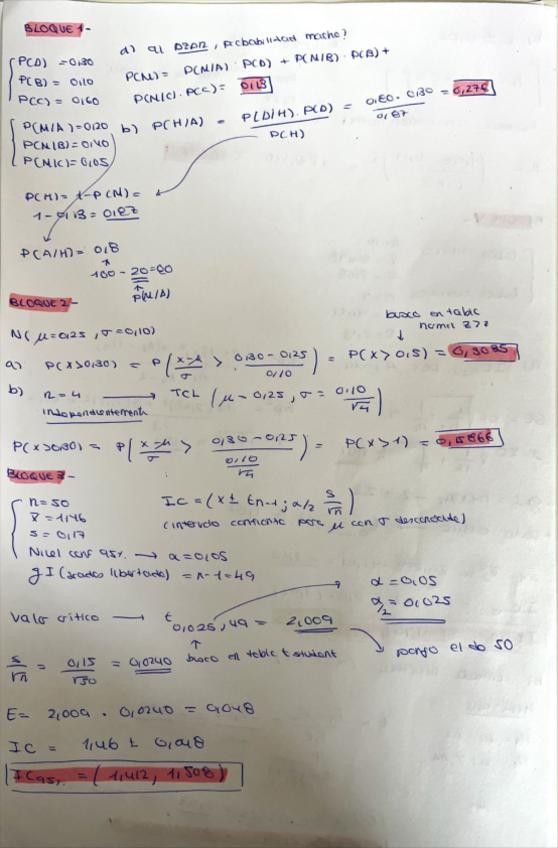 BLOQUE 1-
a) al AZAR, probabilidad macho?
P(D) = 0,30
P(B) = 0,10
P(C) = 0,60
P(M) = P(M/A) · P(D) + P(M/B) · P(B) +
P(M/C) · P(C) = 0,13
P(M/A) = 0,20
P(M/B) = 0,40
P(M/C) = 0,05
b) P(H/A) = P(D/H) · P(D) / P(H) = 0,80 · 0,30 / 0,87 = 0,276
P(H) = 1 - P(M) =
1 - 0,13 = 0,87
P(A/H) = 0,8
100 - 20 = 80
P(M/A)
BLOQUE 2-
N( μ = 0,25 , σ = 0,10)
busco en tabla
normal z>z
a) P(x > 0,30) = P( x-μ / σ > 0,30 - 0,25 / 0,10 ) = P(x > 0,5) = 0,3085
b) n = 4 → TCL ( μ - 0,25 , σ = 0,10 / √4 )
independientemente
P(x > 0,30) = P( x-μ / σ > 0,30 - 0,25 / 0,10 / √4 ) = P(x > 1) = 0,1586
BLOQUE 3-
n = 50
x̄ = 1,46
s = 0,17
Nivel conf 95% → α = 0,05
gl (grados libertad) = n-1 = 49
IC = ( x ± t n-1 ; α/2 s / √n )
(intervalo confianza para μ con σ desconocida)
α = 0,05
α/2 = 0,025
Valor critico → t 0,025, 49 = 2,009
busco en tabla t student
pongo el de 50
s / √n = 0,15 / √50 = 0,0240
E = 2,009 · 0,0240 = 0,048
IC = 1,46 ± 0,048
IC 95% = (1,412, 1,508)